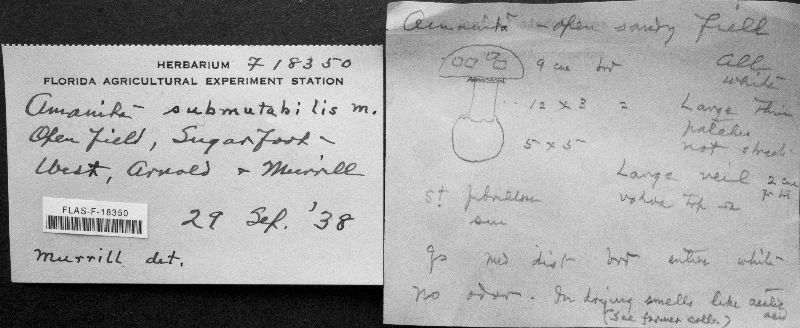 HERBARIUM F 18350
FLORIDA AGRICULTURAL EXPERIMENT STATION
Amanita submutabilis M.
Open field, Sugarfoot -
West, Arnold & Murrill
FLAS-F-18350
29 Sep. '38
Murrill det.
Amanita - open sandy field
9 cm brd All
white
12 x 3 = Large thin
patches
not
5 x 5
Large veil 2 cm
volva top
st
med dist brd entire white
No odor. In drying smells like acetic
acid
(See former colls.)